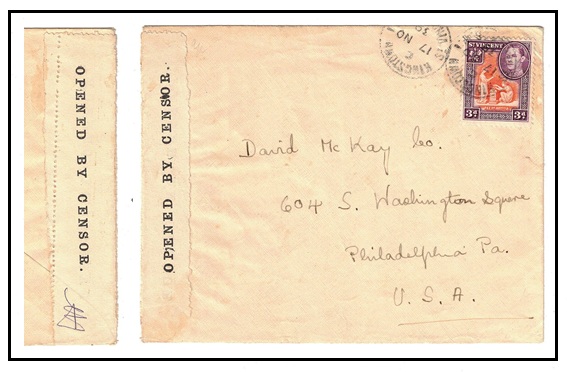 OPENED BY CENSOR.
OPENED BY CENSOR.
KINGSTOWN
17 NO
39
ST VINCENT
3d
3d
David McKay Co.
604 S. Washington Square
Philadelphia Pa.
U. S. A.